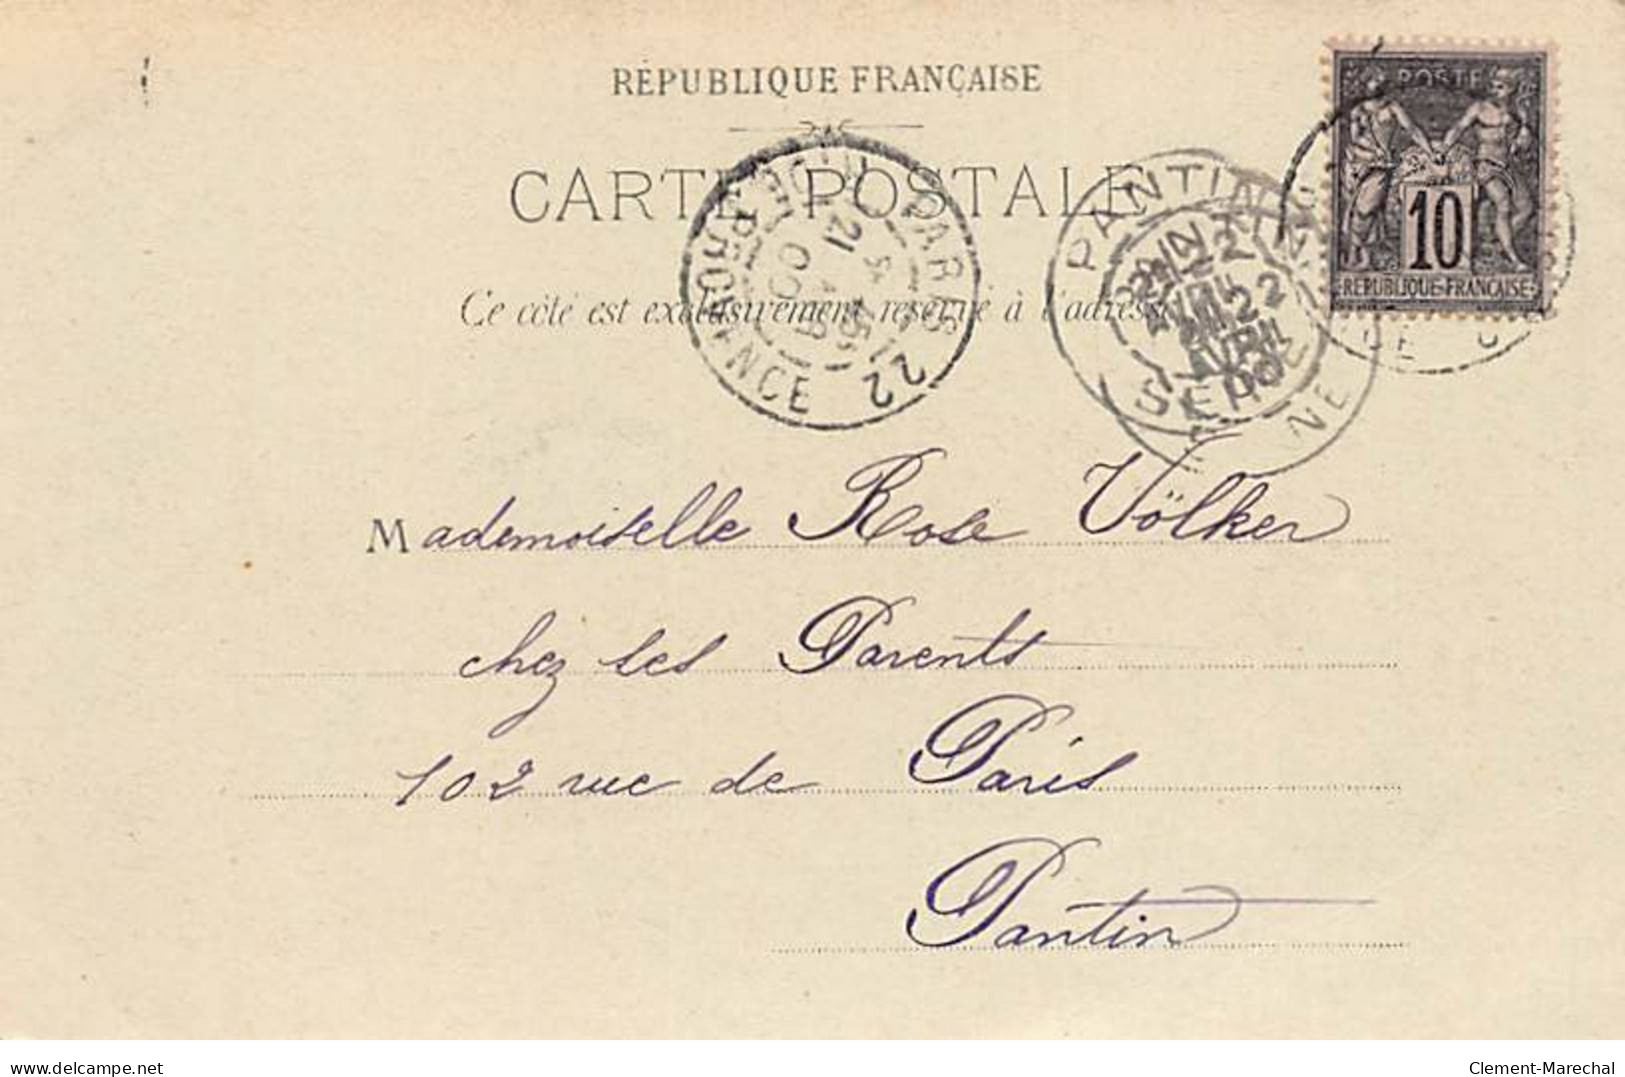 RÉPUBLIQUE FRANÇAISE
CARTE POSTALE
Ce côté est exclusivement réservé à l'adresse
POSTE
10
REPUBLIQUE FRANÇAISE
PARIS 22
PROVENCE
PANTIN
22
AVRIL
SEINE
Mademoiselle Rose Völker
chez ses Parents
102 rue de Paris
Pantin
www.delcampe.net
Clement-Marechal